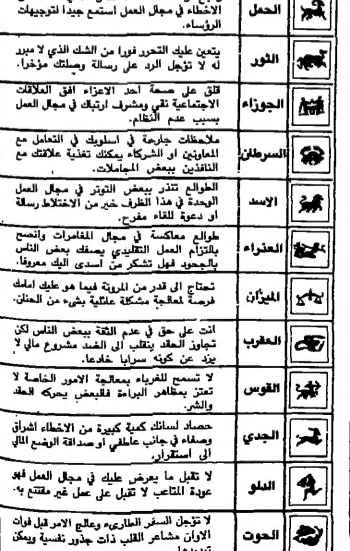 الحمل
الاخطاء في مجال العمل استمع جيدا لتوجيهات
الرؤساء.
الثور
يتعين عليك التحرر فورا من الشك الذي لا مبرر
له لا تؤجل الرد على رسالة وصلتك مؤخرا.
الجوزاء
قلق على صحة احد الاعزاء افق العلاقات
الاجتماعية نقي ومشرف ارتباك في مجال العمل
بسبب عدم النظام.
السرطان
ملاحظات جارحة في اسلوبك في التعامل مع
المعاونين او الشركاء يمكنك تغذية علاقتك مع
النافذين ببعض المجاملات.
الاسد
الطوالع تنذر ببعض التوتر في مجال العمل
الوحدة في هذا الظرف خير من الاختلاط رسالة
او دعوة للقاء مفرح.
العذراء
طوالع معاكسة في مجال المغامرات وانصح
بالتزام العمل التقليدي يصفك بعض الناس
بالجحود فهل تشكر من أسدى اليك معروفا.
الميزان
تحتاج الى قدر من المرونة فيما هو عليك امامك
فرصة لمعالجة مشكلة عائلية بشيء من الحنان.
العقرب
انت على حق في عدم الثقة ببعض الناس لكن
تجاوز الحقد ينقلب الى الضد مشروع مالي لا
يزد عن كونه سرابا خادعا.
القوس
لا تسمح للغرباء بمعالجة الامور الخاصة لا
تعتز بمظاهر البراءة فالبعض يحركه الحقد
والشر.
الجدي
حصاد لسانك كمية كبيرة من الاخطاء اشراق
وصفاء في جانب عاطفي او صداقة الوضع المالي
الى استقرار.
الدلو
لا تقبل ما يعرض عليك في مجال العمل فهو
عودة المتاعب لا تقبل على عمل غير مقتنع به.
الحوت
لا تؤجل السفر الطارىء وعالج الامر قبل فوات
الاوان مشاعر القلب ذات جذور نفسية ويمكن